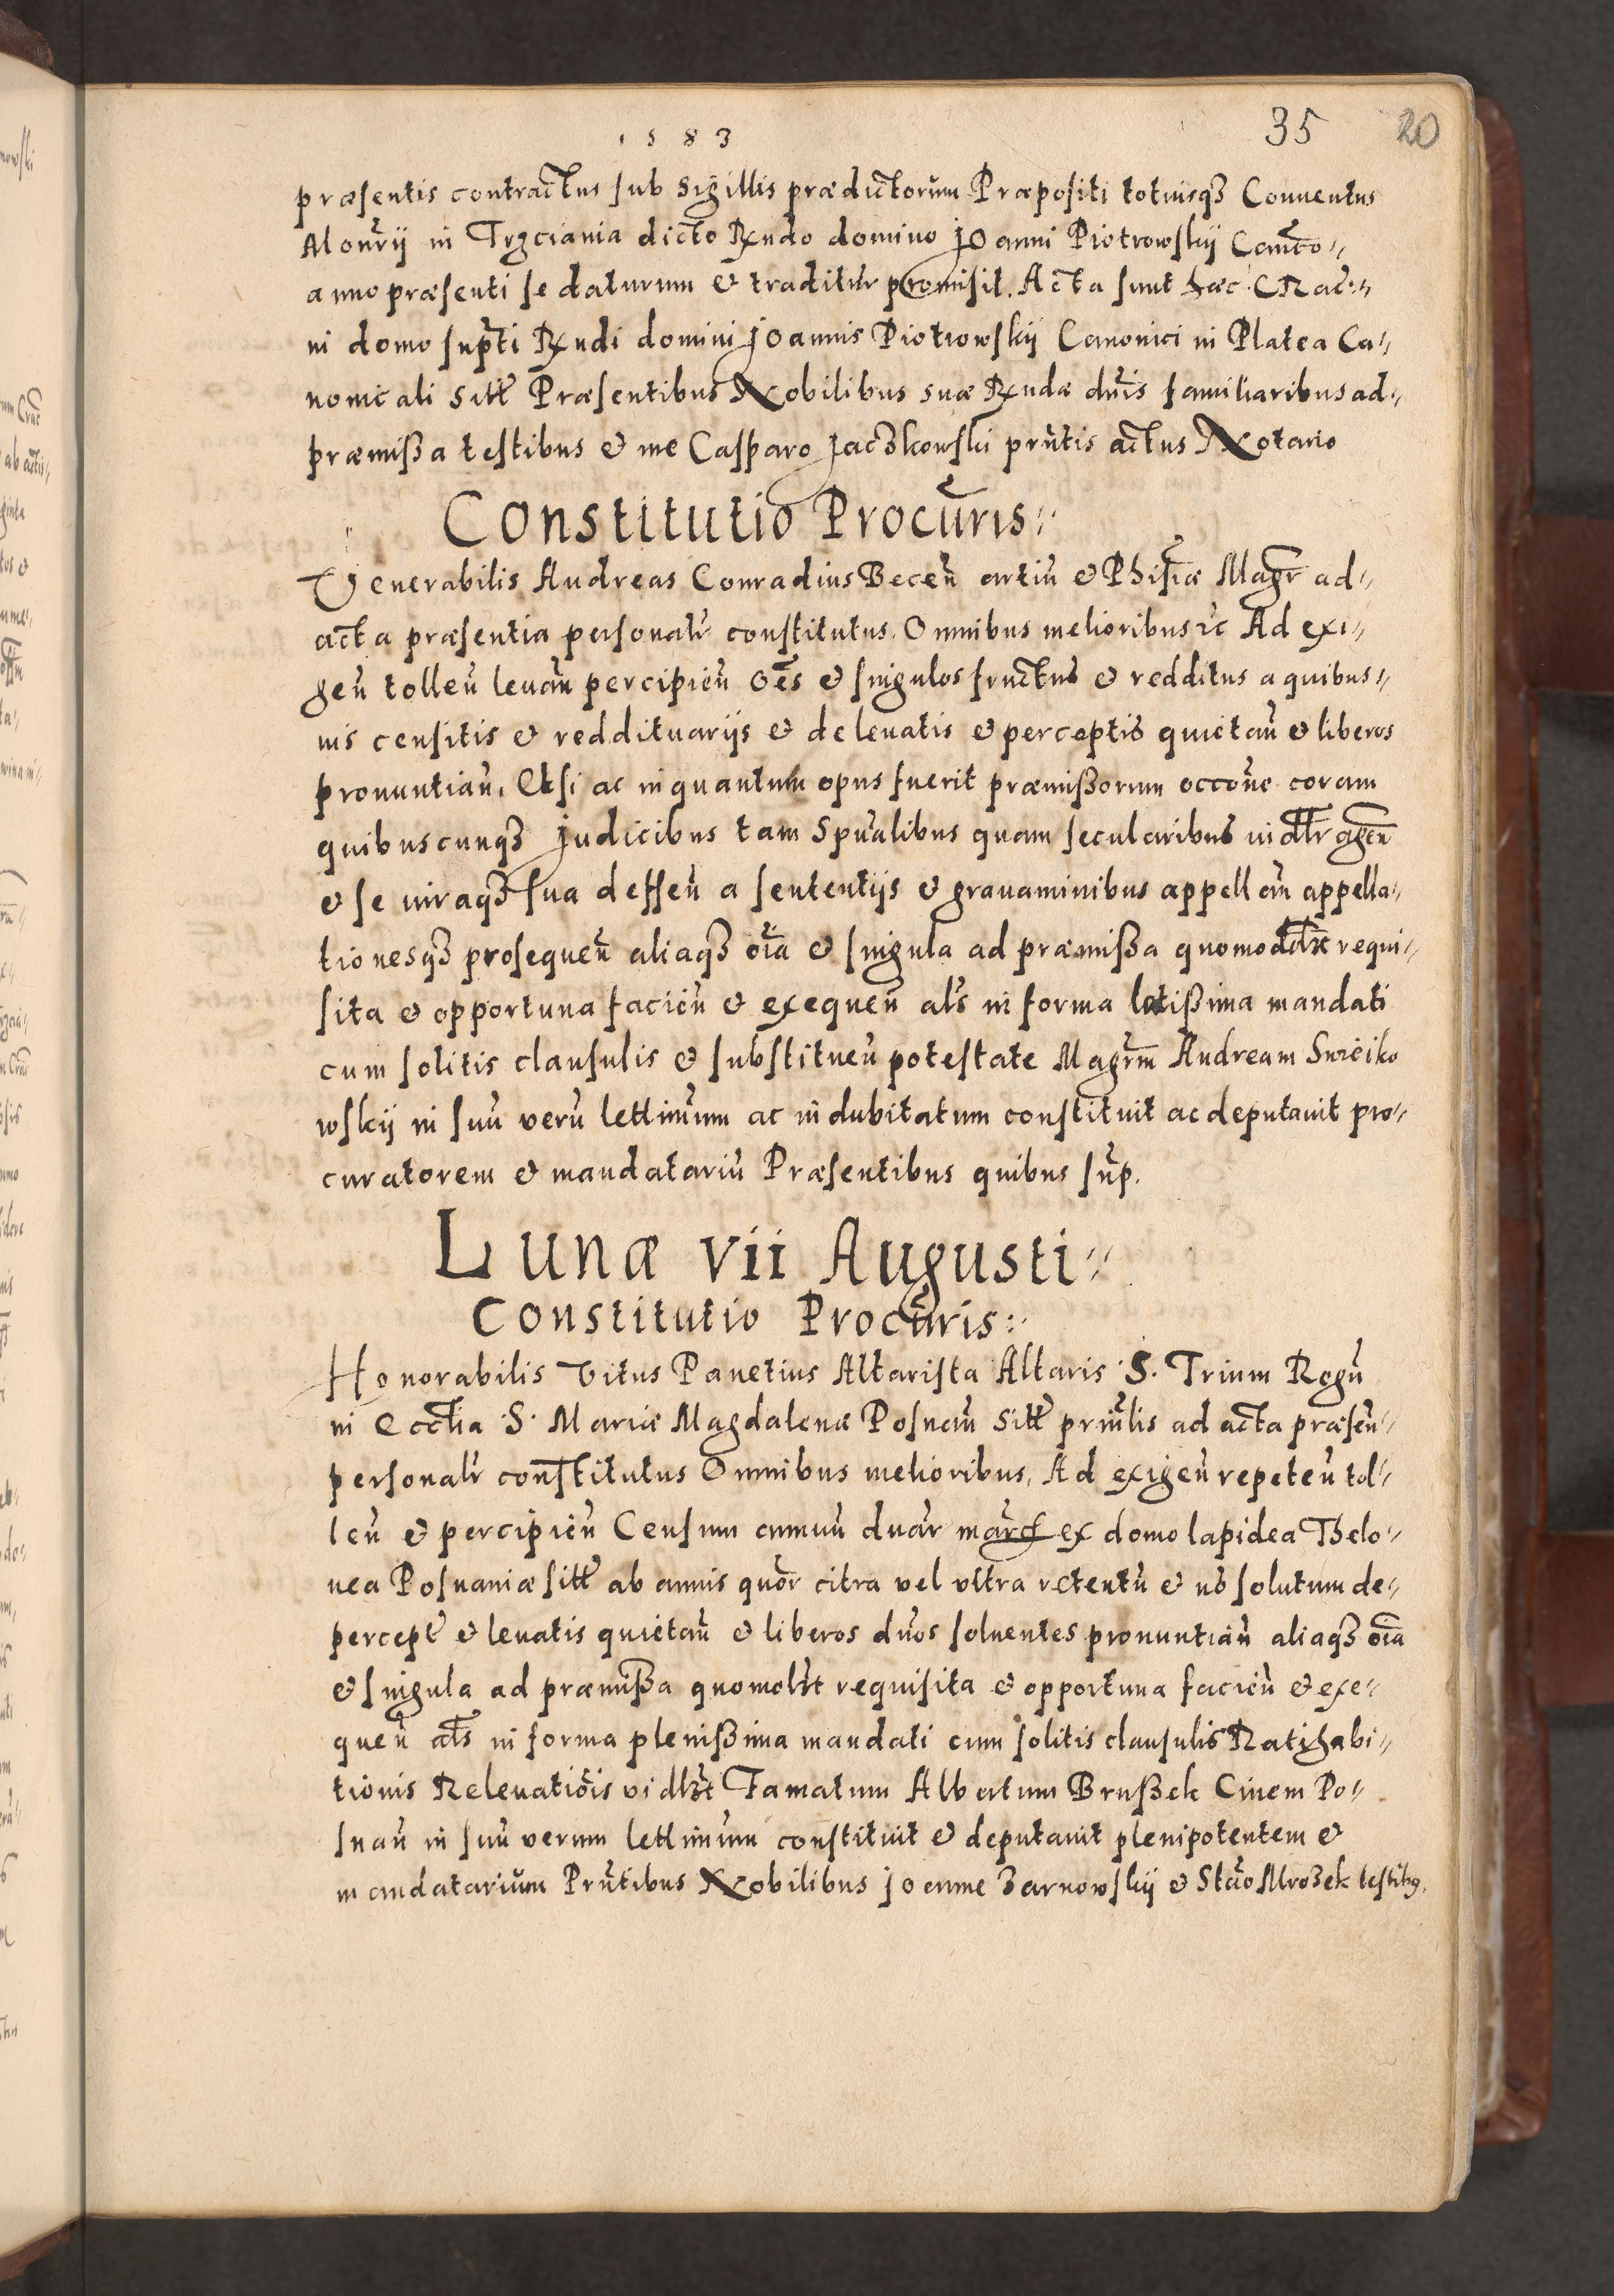 1583
35 20
præsentis contractus sub sigillis prædictorum Præpositi totiusqȝ Conuentus
Monrÿ in Trzciania dicto Rndo domino Joanni Piotrowskÿ Canco
anno præsenti se daturum & traditur promisit. Acta sunt hæc Crac
in domo suprati Rndi domini Joannis Piotrowskÿ Canonici in Platea Ca
nonicali sitt Præsentibus Nobilibus suæ Rndæ dnis familiaribus ad
præmißa testibus & me Casparo Jaczkowski prntis actus Notario
Constitutio Procuris
Venerabilis Andreas Conradius Becen artiu & Phisiæ Magr ad
acta præsentia personalr constitutus. Omnibus melioribus ic Ad exi
gen tollen leuan percipien oes & singulos fructus & redditus a quibus
uis censitis & reddituarÿs & de leuatis & perceptis quietan & liberos
pronuntian. Etsi ac inquantum opus fuerit præmißorum occone coram
quibuscunqȝ Judicibus tam Spualibus quam secularibus in dltr agen
& se iuraqȝ sua deffen a sententÿs & grauaminibus appellan appella
tionesqȝ prosequen aliaqȝ oia & singula ad præmißa quomodolzt requi
sita & opportuna facien & exequen als in forma latißima mandati
cum solitis clausulis & substituen potestate Magrm Andream Swieiko
wskÿ in suu veru lettimum ac indubitatum constituit ac deputauit pro
curatorem & mandatariu Præsentibus quibus sup.
Lunæ vii Augusti
Constitutio Procuris
Honorabilis Vitus Panetius Altarista Altaris S. Trium Regu
in Ecctia S. Mariæ Magdalenæ Posnan sitt prinlis ad acta præsen
personalr constitutus Omnibus melioribus, Ad exigen repeten tol
len & percipien Censum annuu duar marc ex domo lapidea Thelo
nea Posnaniæ sitt ab annis quor citra vel vltra retentu & no solutum de
percept & leuatis quietan & liberos duos soluentes pronuntian aliaqȝ oia
& singula ad præmißa quomolzt requisita & opportuna facien & exe
quen als in forma plenißima mandati cum solitis clausulis Ratihabi
tionis Releuatiois vidlzt Famatum Albertum Brußek Ciuem Po
snan in suu verum lettimum constituit & deputauit plenipotentem &
mandatarium Prntibus Nobilibus Joanne Zarnowskÿ & Stao Mrozek testibꝰ.